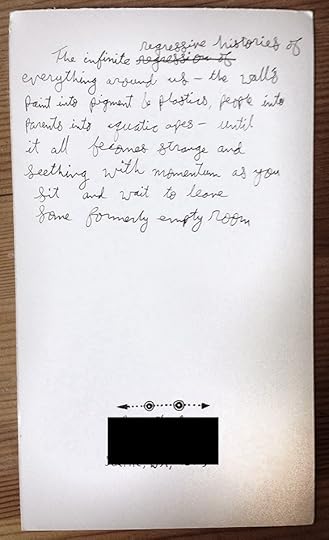 The infinite regression of regressive histories of
everything around us — the wall's
paint into pigment & plastics, people into
parents into aquatic apes — until
it all becomes strange and
seething with momentum as you
sit and wait to leave
some formerly empty room